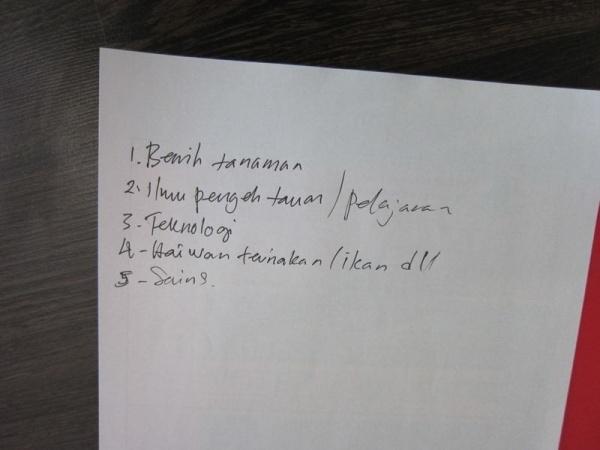 1. Benih tanaman
2. Ilmu pengeh tauan / pelajaran
3. Teknologi
4 - Haiwan ternakan / ikan dll
5 - Sains.